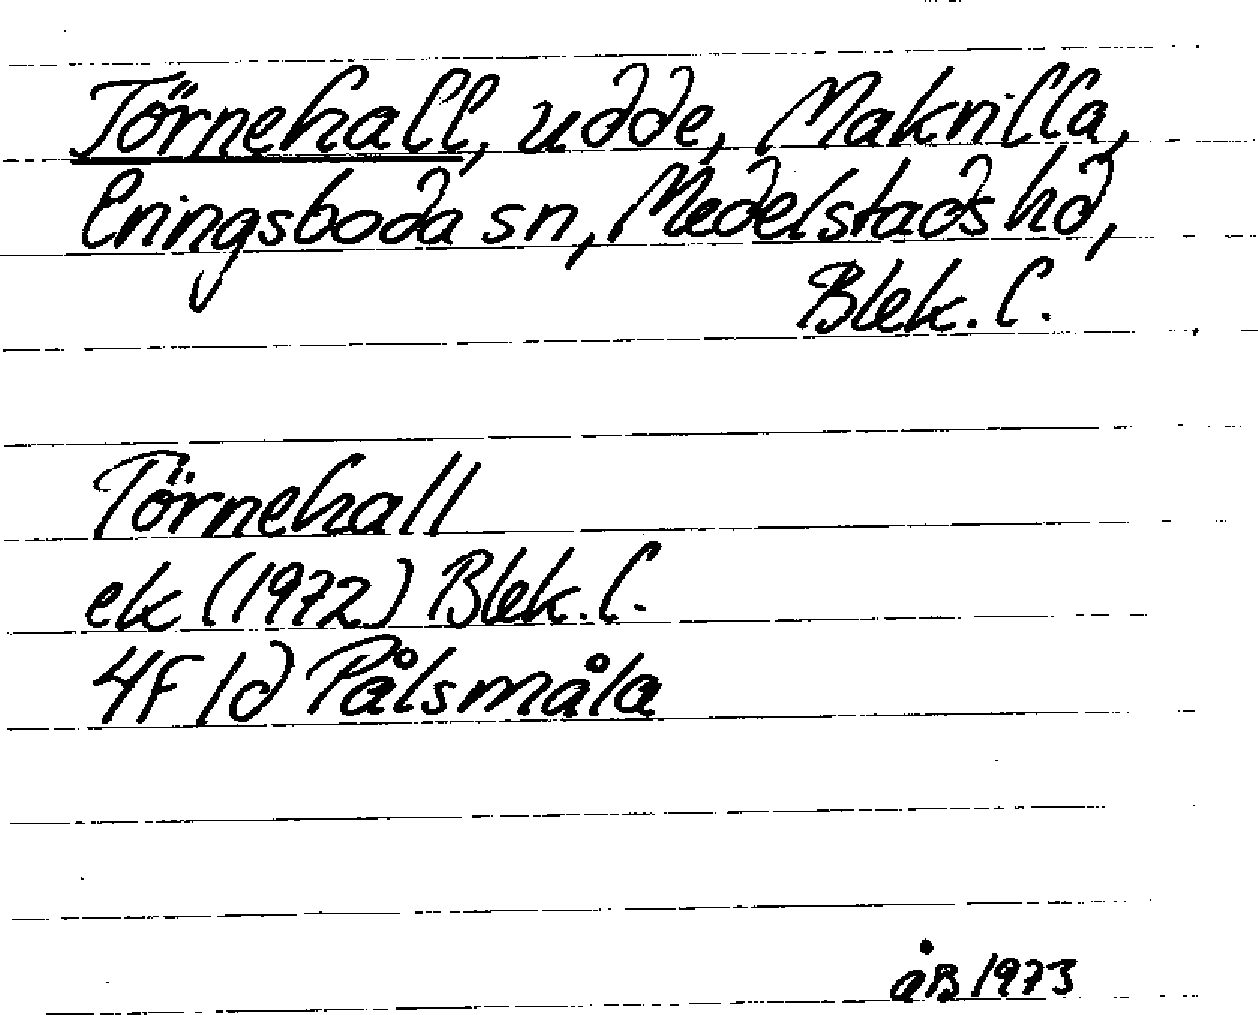 Törnehall, udde, Maknilla,
Eringsboda sn, Medelstads hd,
Blek. l.
Törnehall
ek (1972) Blek. l.
4F 1d Pålsmåla
åB 1973